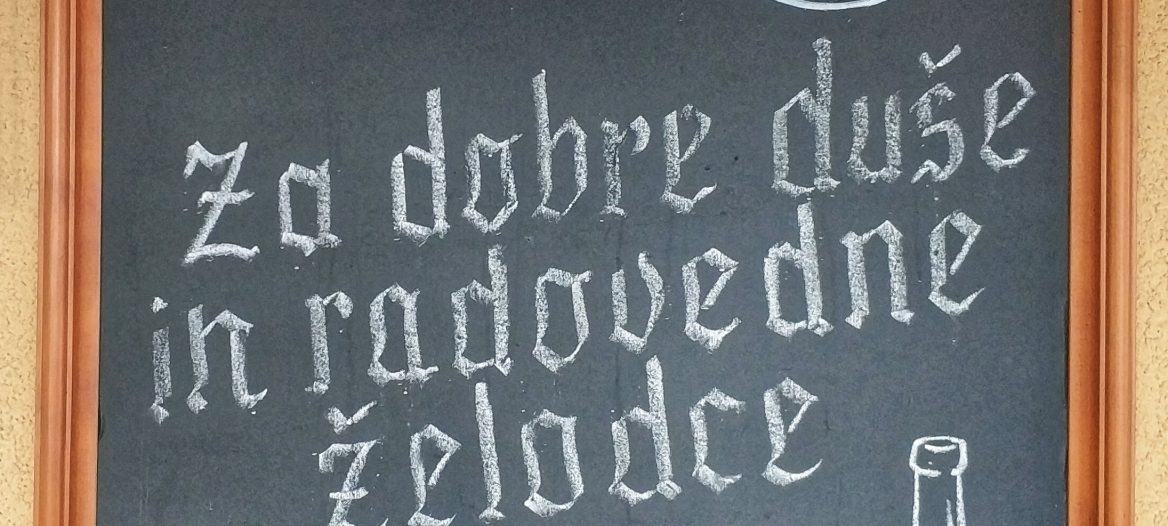 Za dobre duše
in radovedne
želodce